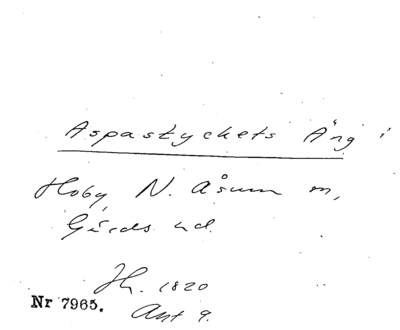 Aspastyckets Äng i
Hoby, N. Åsum m,
Gärds hd.
Hh. 1820
Nr 7965.
Akt 9.